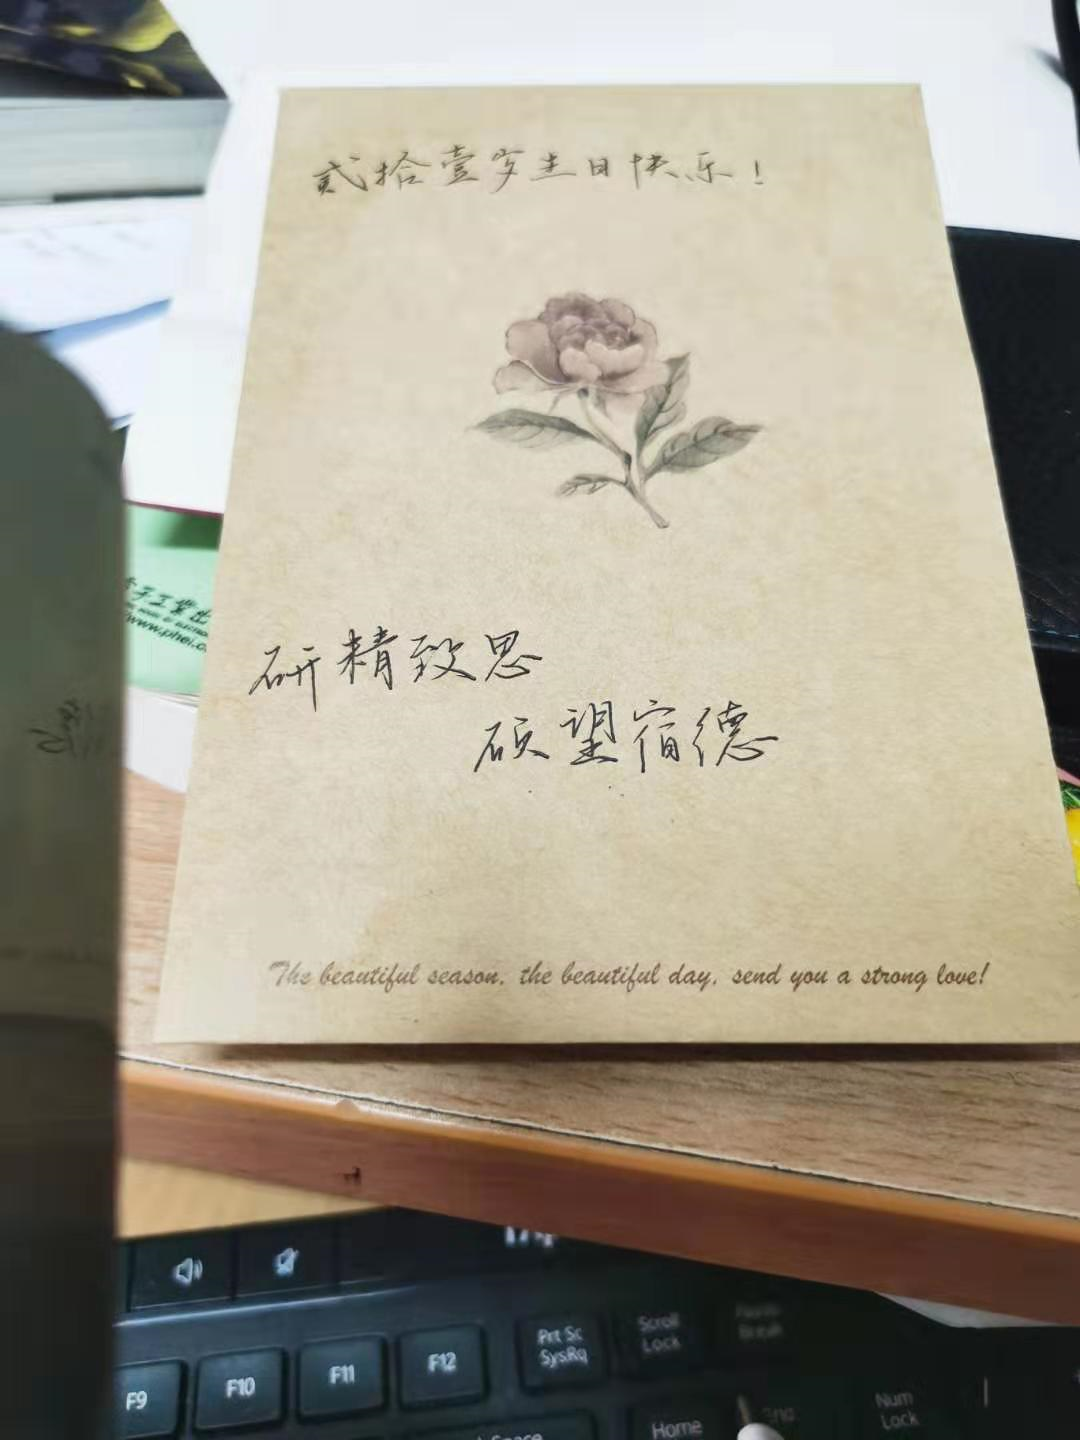 贰拾壹岁生日快乐！
研精致思
硕望宿德
The beautiful season, the beautiful day, send you a strong love!
子工业出
www.phei.c
F9
F10
F11
F12
Prt Sc
SysRq
Scroll
Lock
Break
Home
End
Num
Lock
Space